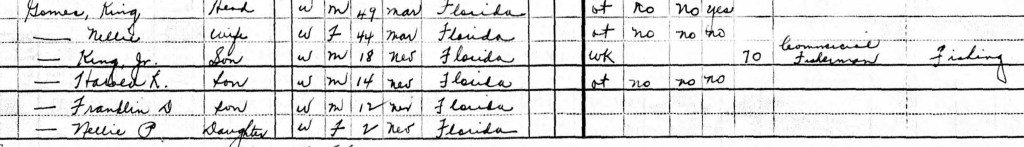 Gomes, King Head W M 49 Mar Florida ot no no yes
— Nellie Wife W F 44 Mar Florida ot no no no
— King, Jr. Son W M 18 Nev Florida WK 70 Commercial Fisherman Fishing
— Harold R. Son W M 14 Nev Florida ot no no no
— Franklin D Son W M 12 Nev Florida
— Nellie P. Daughter W F 2 Nev Florida